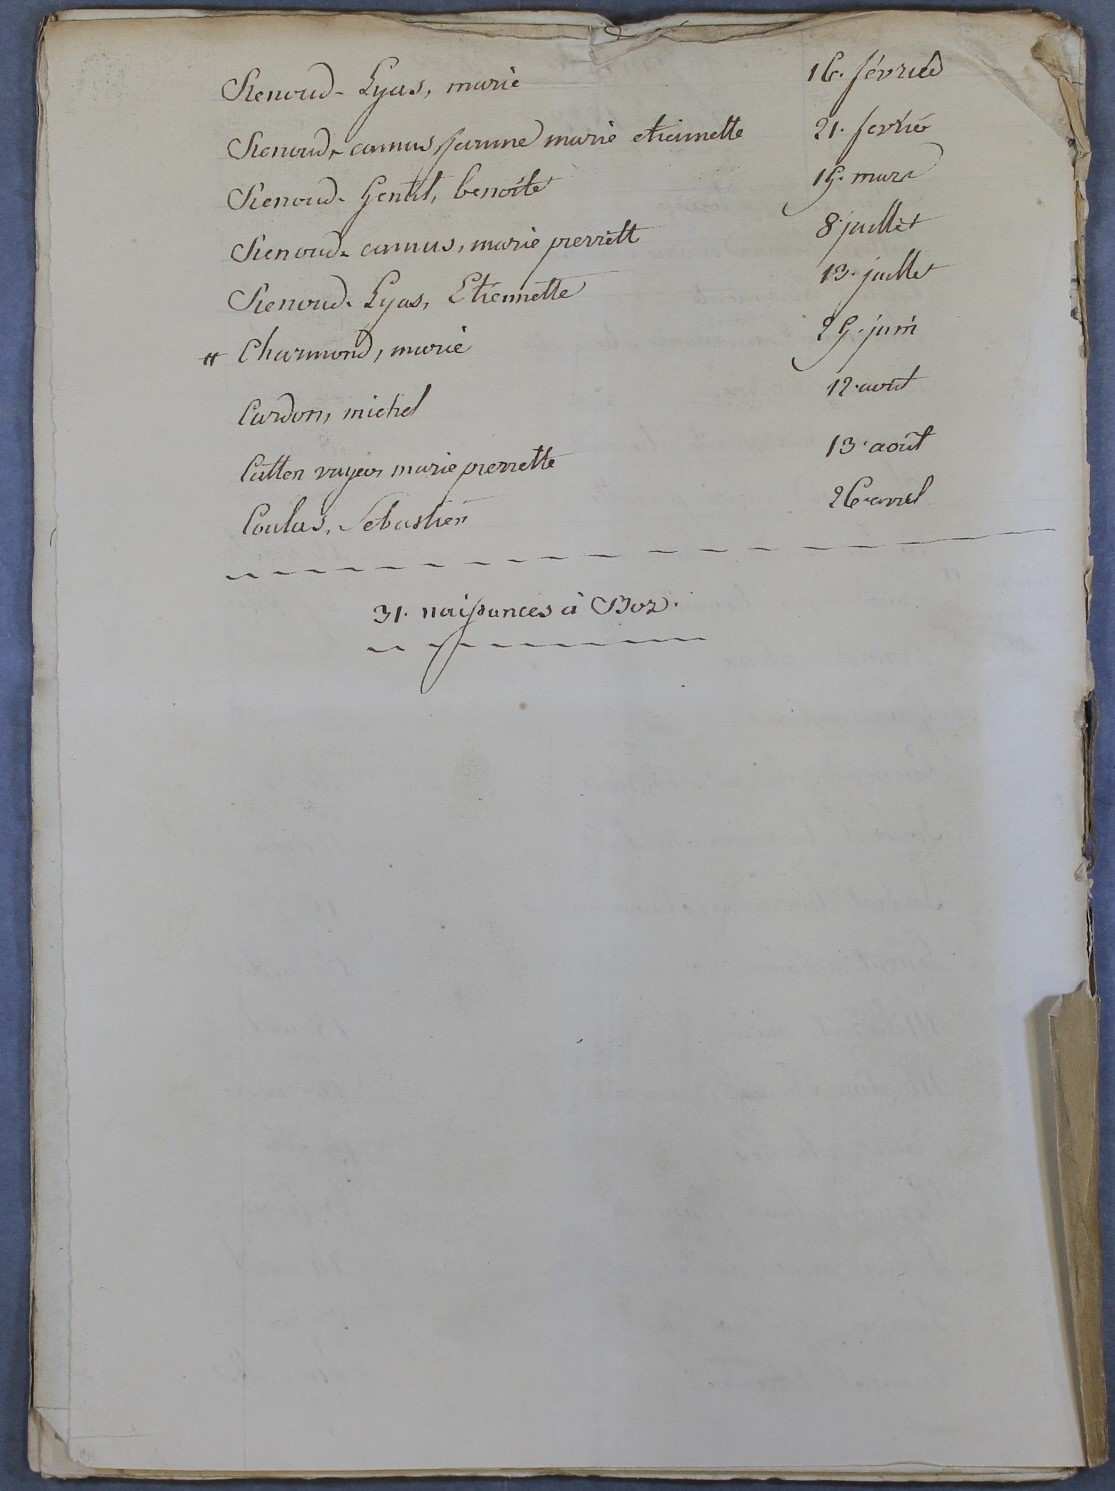 Renoud-Lyas, marie 16. février
Renoud-camus, jeanne marie etiennette 21. fevrié
Renoud-Gentil, benoite 19. mars
Renoud-camus, marie pierrett 8. juillet
Renoud-Lyas, Etiennette 13. juillet
# Charmond, marie 29. juin
Cardon, michel 12. aout
marie pierrette 13. août
Coulas, Sebastien 26. avril
31. naissances à Boz.